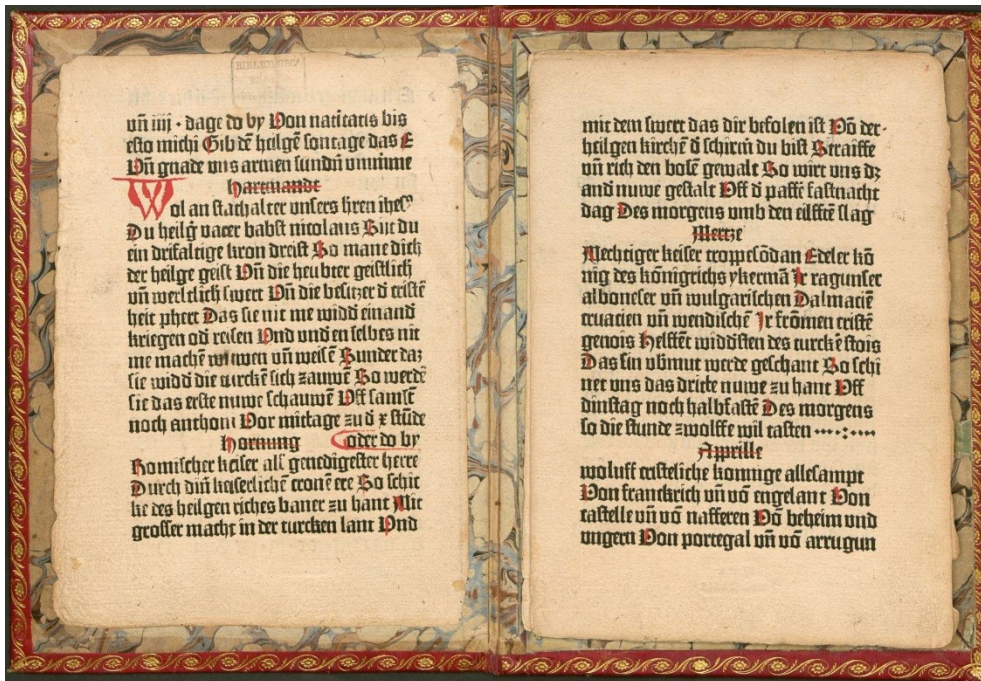 vñ iiij · dage do by Von natitatis bis
esto michi Gib dē heilgē sontage das E
Vñ gnade vns armen sundñ vnuṙme
Hartmandt
Wol an stachalter vnsers hren ihesꝰ
Du heilgꝭ vater babst nicolaus Sijt du
ein drifaltige kron dreist So mane dich
der heilge geist Vñ die heubter geistlich
vñ werltlich swert Vñ die besitzer d̉ cristē
heit phert Das sie nit me widd̉ einand̉
kriegen od̉ reisen Vnd vnd̉en selbes nit
me machē witwen vñ weisē Sunder daz
sie widd̉ die turckē sich zauwē So werdē
sie das erste nuwe schauwē Vff samsē
noch anthoni Vor mittage zu d̉ x stūde
Hornung oder do by
Romischer keiser alſ genedigester herre
Durch din̄ keiserlichē cronē ere So schic
ke des heilgen riches baner zu hant Mit
grosser macht in der turcken lant Vnd
mit dem swert das dir befolen ist Vō der-
heilgen kirchē d̉ schirm̄ du bist Straiffe
vñ rich den bosē gewalt So wirt vns dꝫ
and̉ nuwe gestalt Vff d̉ paffē fastnacht
dag Des morgens vmb den eilfftē slag
Mertze
Mechtiger keiser troppesōdan Edeler kō
nig des kōnigrichs ykermā Ir ragunser
alboneser vñ wulgarischen Dalmaciē
cruacien vñ wendischē Ir frōmen cristē
genois Helffēt widd̉sten des turckē stois
Das sin vb̉mut werde geschant So schi
net vns das dritte nuwe zu hant Vff
dinstag noch halbfastē Des morgens
so die stunde zwolffe wil tasten ····:····
Apprille
wol uff cristeliche konnige allesampt
Von franckrich vñ vō engelant Von
castelle vñ vō nafferen Vō beheim vnd
vngern Von portegal vñ vō arrugun